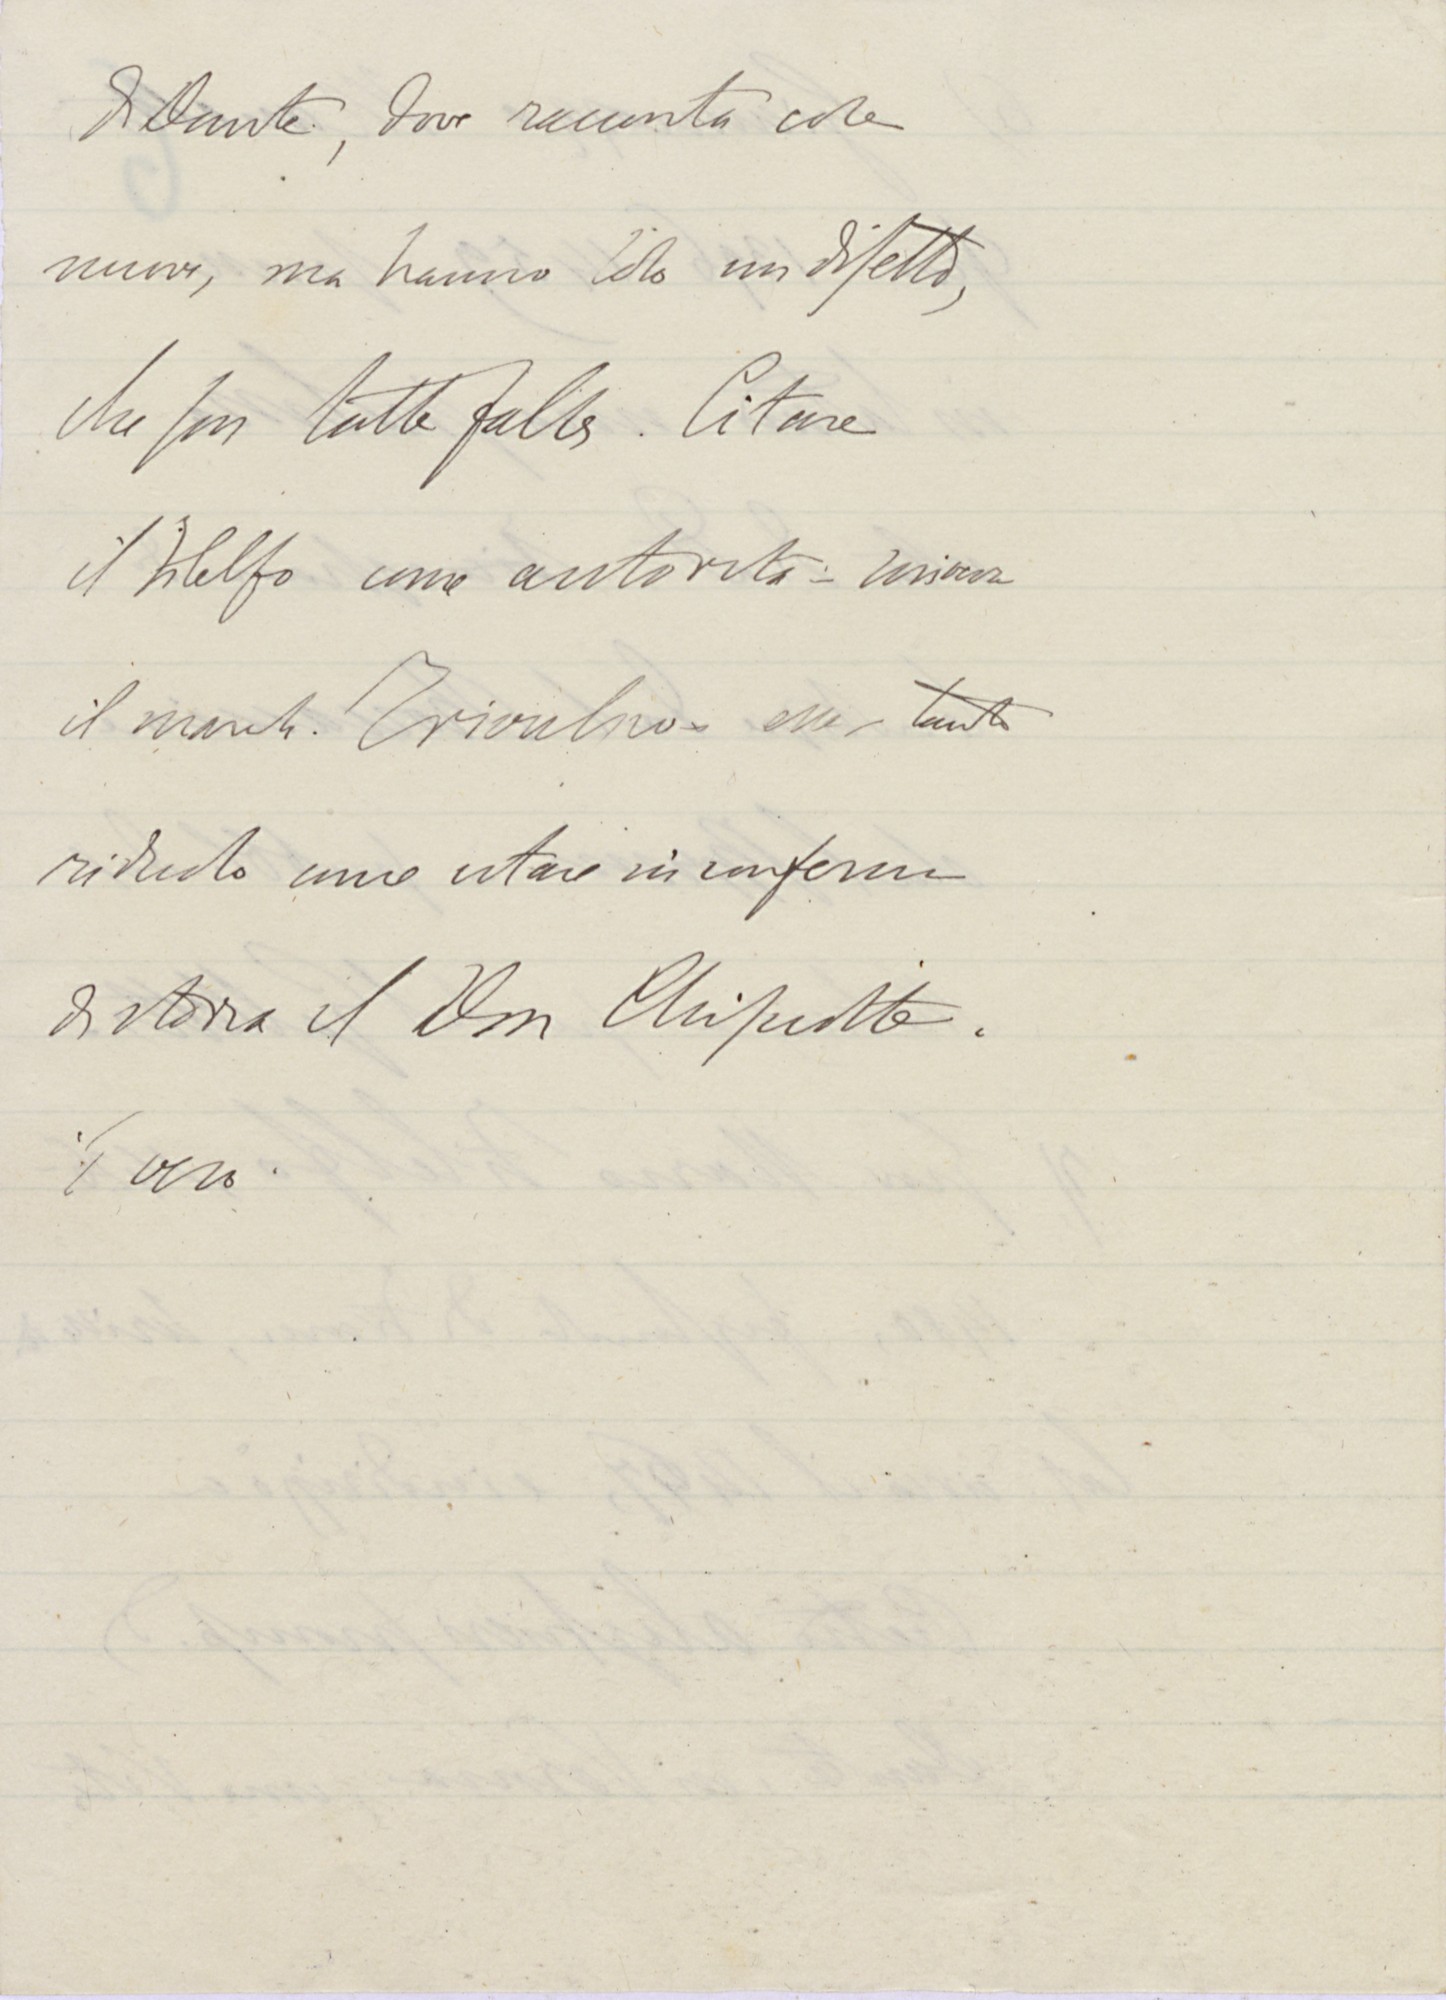 di Dante, dove racconta cose
nuove, ma hanno solo un difetto,
che son tutte false. Citare
il Filelfo come autorità
il march. Trivulzio tanto
ridicolo come citare in conferma
di storia il Don Chisciotte.
vero.